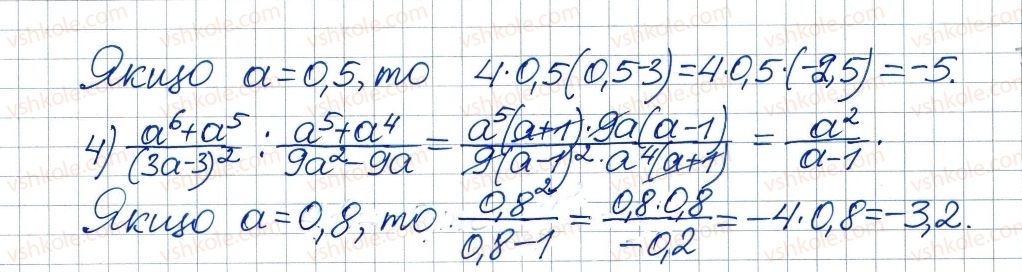 Якщо a=0,5, то 4·0,5(0,5-3)=4·0,5·(-2,5)=-5.
4) (a⁶+a⁵)/(3a-3)² : (a⁵+a⁴)/(9a²-9a) = (a⁵(a+1)·9a(a-1))/(9(a-1)²·a⁴(a+1)) = a²/(a-1).
Якщо a=0,8, то: 0,8²/(0,8-1) = (0,8·0,8)/(-0,2) = -4·0,8=-3,2.